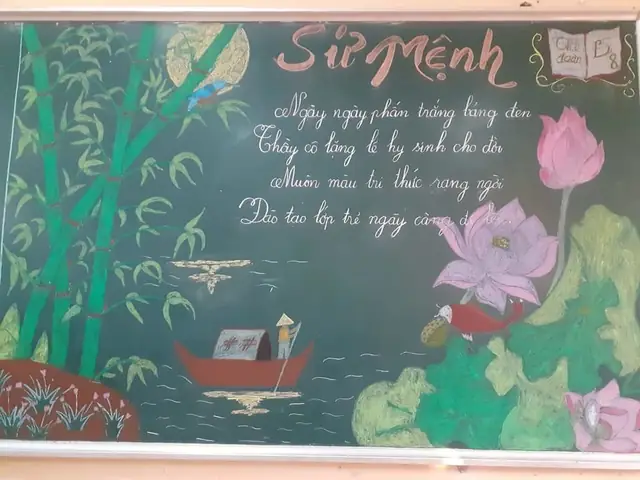 Sứ Mệnh
Chi đoàn B8
Ngày ngày phấn trắng bảng đen
Thầy cô lặng lẽ hy sinh cho đời
Muôn màu tri thức rạng ngời
Đào tạo lớp trẻ ngày càng đi